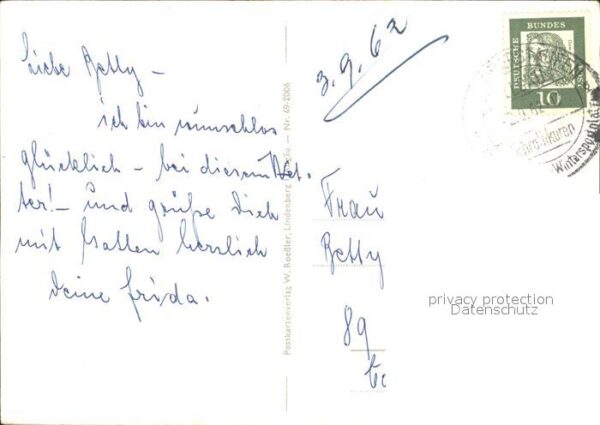 3.9.62
Liebe Betty –
ich bin wunschlos
glücklich – bei diesem Wet-
ter! – und grüße Dich
mit Gatten herzlich
Deine Frida.
Postkartenverlag W. Roeßler, Lindenberg Nr. 49/2006
DEUTSCHE BUNDES
10
Wintersportplatz
Frau
Betty
89
privacy protection
Datenschutz